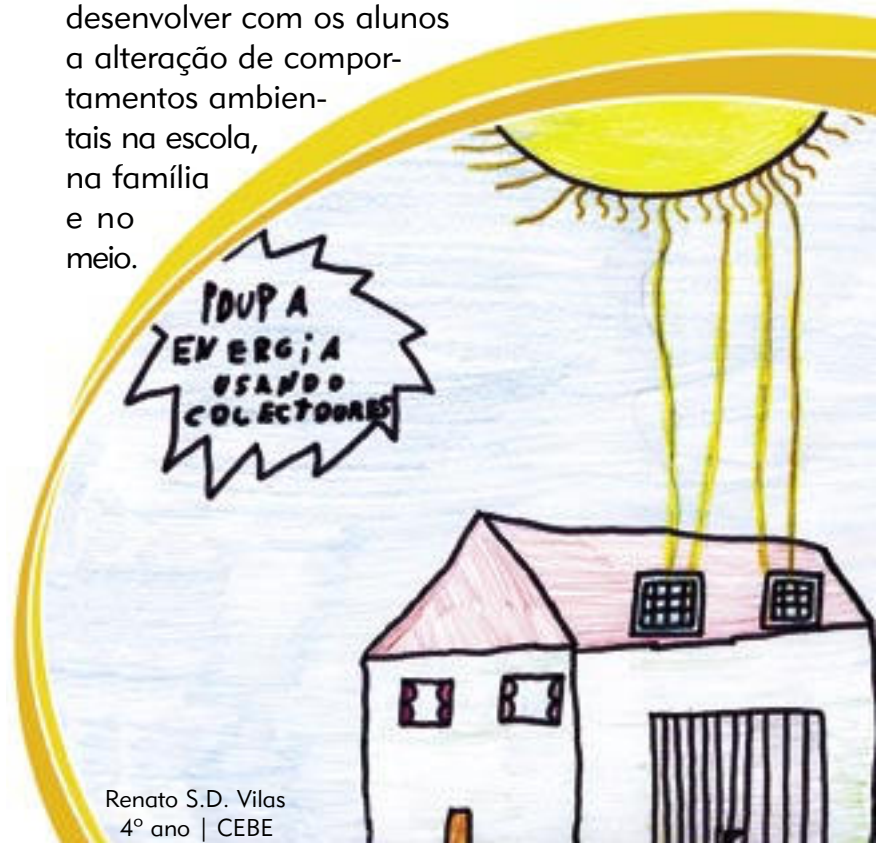 desenvolver com os alunos
a alteração de compor-
tamentos ambien-
tais na escola,
na família
e no
meio.
POUP A
ENERGiA
USANDO
COLECTOORES
Renato S.D. Vilas
4º ano | CEBE